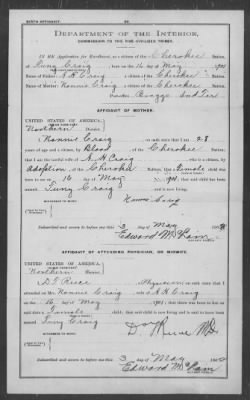 BIRTH AFFIDAVIT.
DEPARTMENT OF THE INTERIOR,
COMMISSION TO THE FIVE CIVILIZED TRIBES.
IN RE Application for Enrollment, as a citizen of the Cherokee Nation,
of Craig, born on the 16 day of May, 1901
Name of Father: A H Craig a citizen of the Cherokee Nation.
Name of Mother: Nannie Craig a citizen of the Cherokee Nation.
Postoffice Ind Ter
AFFIDAVIT OF MOTHER.
UNITED STATES OF AMERICA,
Northern District.
I, Nannie Craig, on oath state that I am 28
years of age and a citizen, by Blood, of the Cherokee Nation;
that I am the lawful wife of A. H Craig, who is a citizen, by
Adoption, of the Cherokee Nation; that a Female child was
born to me on 16 day of May, 1901, that said child has been
named Craig, and is now living.
Nannie Craig
Subscribed and sworn to before me this 3 day of May
Edward
AFFIDAVIT OF ATTENDING PHYSICIAN, OR MIDWIFE.
UNITED STATES OF AMERICA,
Northern District.
I, Reese, a Physician, on oath state that I
attended on Mrs. Nannie Craig, wife of A H Craig
on the 16 day of May, 1901; that there was born to her on
said date a Female child; that said child is now living and is said to have been
named Craig
M.D.
Subscribed and sworn to before me this 3 day of May
Edward